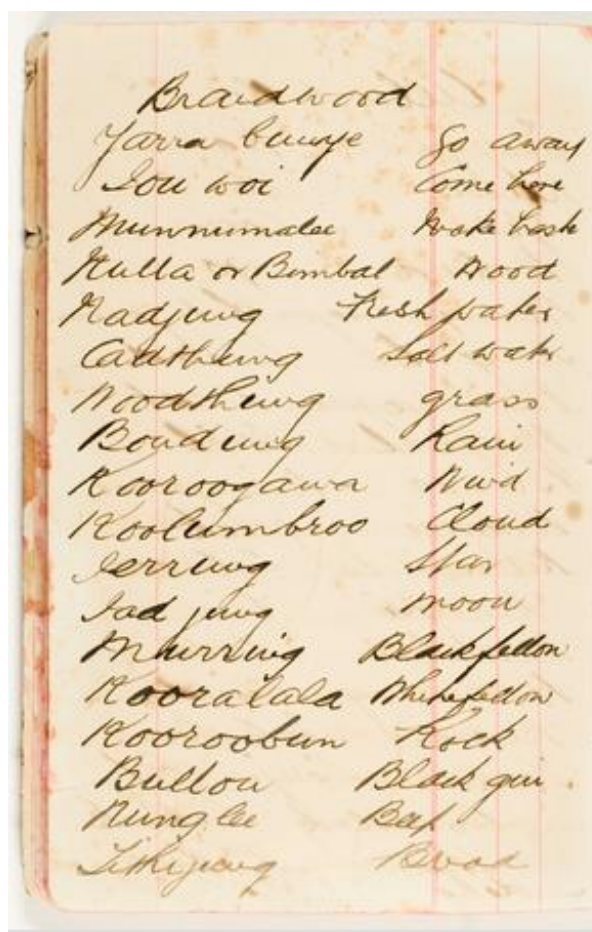 Braidwood
Yarra bunye Go away
Iou woi Come here
Munnumalee Make haste
Nulla or Bimbal Wood
Nadjung Fresh water
Cadthung Salt water
Noodthung grass
Boudung Rain
Kooroogawa Wind
Koolumbroo Cloud
Jerrung Star
Jadjung Moon
Murring Blackfellow
Kooralala Whitefellow
Kooroobun Rock
Bullou Black gin
Nunglee Beef